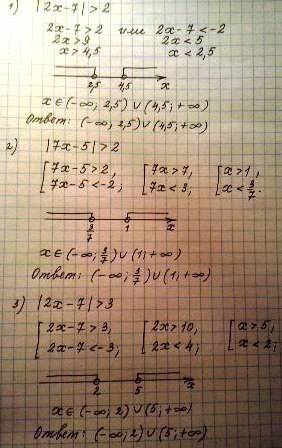 1) |2x-7|>2
2x-7>2 или 2x-7<-2
2x>9 2x<5
x>4,5 x<2,5
2,5 4,5 x
x∈(-∞; 2,5)∪(4,5; +∞)
Ответ: (-∞; 2,5)∪(4,5; +∞)
2) |7x-5|>2
[7x-5>2, [7x>7, [x>1,
[7x-5<-2; [7x<3; [x<3/7.
3/7 1 x
x∈(-∞; 3/7)∪(1; +∞)
Ответ: (-∞; 3/7)∪(1; +∞)
3) |2x-7|>3
[2x-7>3, [2x>10, [x>5,
[2x-7<-3, [2x<4; [x<2;
2 5 x
x∈(-∞; 2)∪(5; +∞)
Ответ: (-∞; 2)∪(5; +∞)